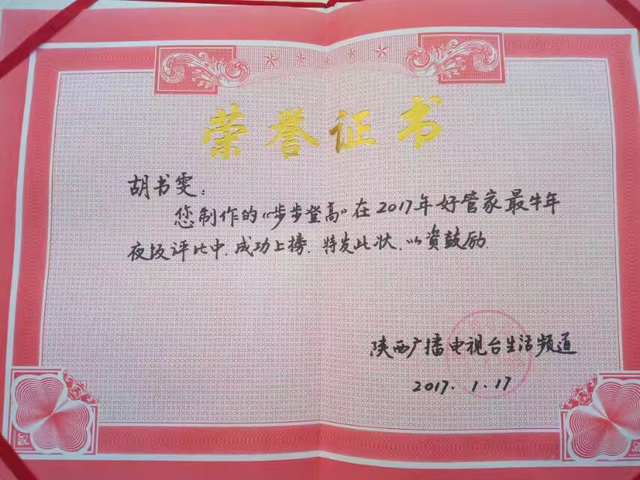 荣誉证书
胡书雯：
您制作的《步步登高》在2017年好管家最牛年
夜饭评比中，成功上榜，特发此状，以资鼓励
陕西广播电视台生活频道
2017.1.17